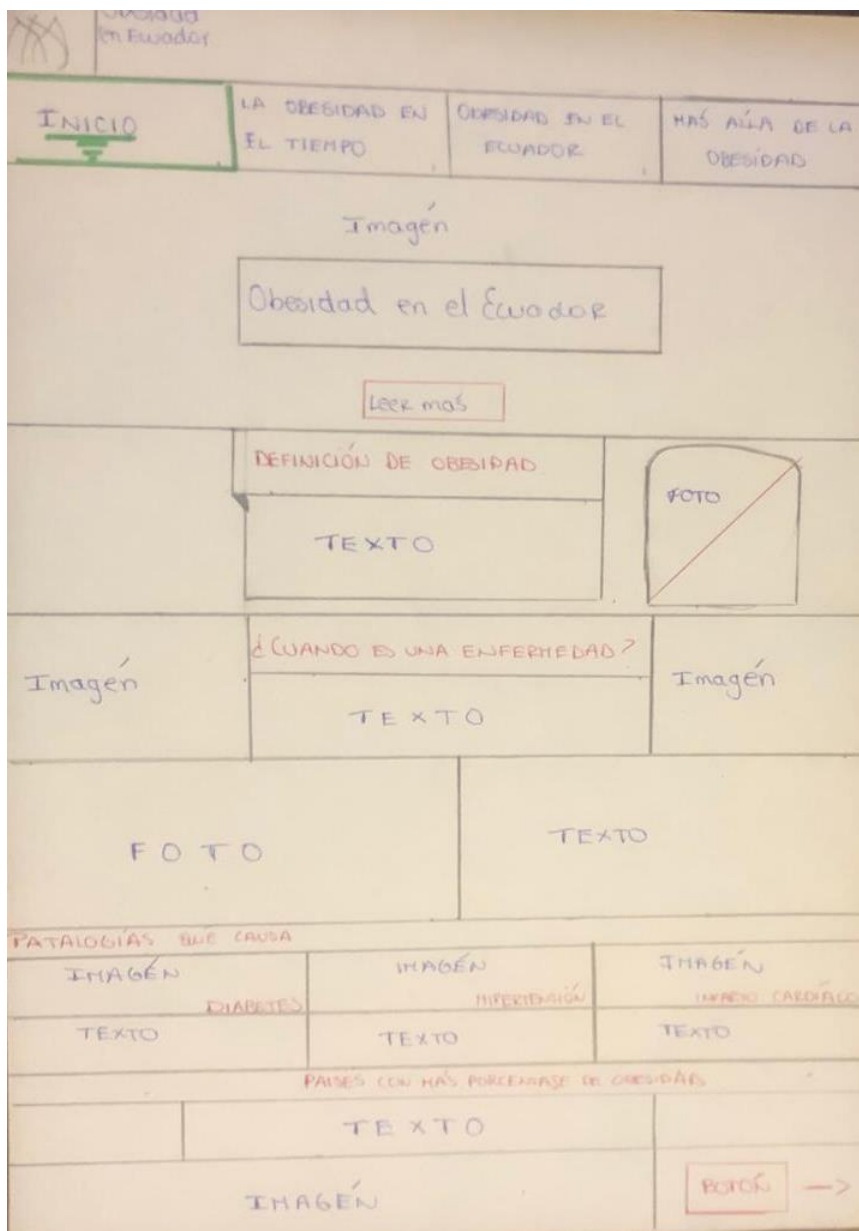 en Ecuador
INICIO
LA OBESIDAD EN
EL TIEMPO
OBESIDAD EN EL
ECUADOR
MAS ALLA DE LA
OBESIDAD
Imagén
Obesidad en el Ecuador
Leer mas
DEFINICIÓN DE OBESIDAD
TEXTO
FOTO
Imagén
¿CUANDO ES UNA ENFERMEDAD?
TEXTO
Imagén
FOTO
TEXTO
PATALOGÍAS QUE CAUSA
IMAGÉN
DIABETES
IMAGÉN
HIPERTENSIÓN
IMAGÉN
INFARTO CARDÍACO
TEXTO
TEXTO
TEXTO
PAISES CON MÁS PORCENTAJE DE OBESIDAD
TEXTO
IMAGÉN
BOTÓN